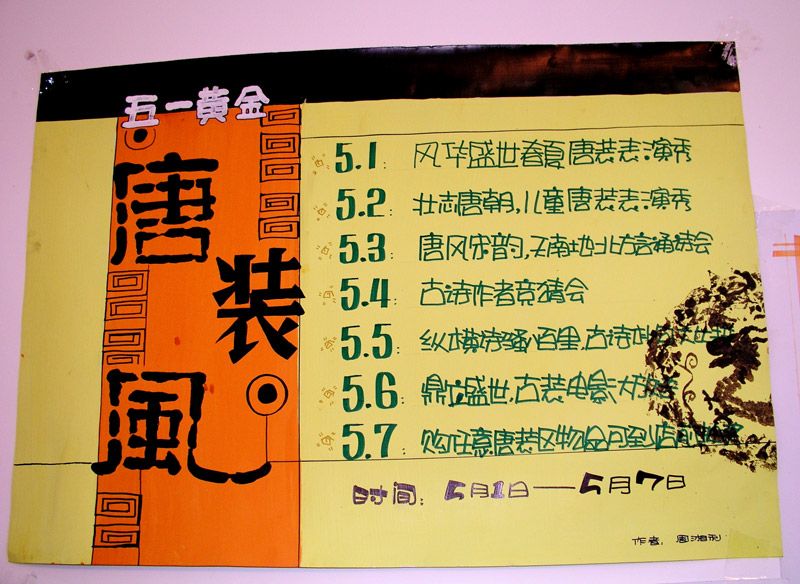 五一黄金
唐
装
風
5.1：风华盛世春夏唐装表演秀
5.2：壮志唐朝，儿童唐装表演秀
5.3：唐风宋韵，天南地北方言诵诗会
5.4：古诗作者竞猜会
5.5：纵横诗骚百里，古诗
5.6：鼎立盛世，古装电影大
5.7：购任意唐装区物品可至
时间：5月1日——5月7日
作者：周湘